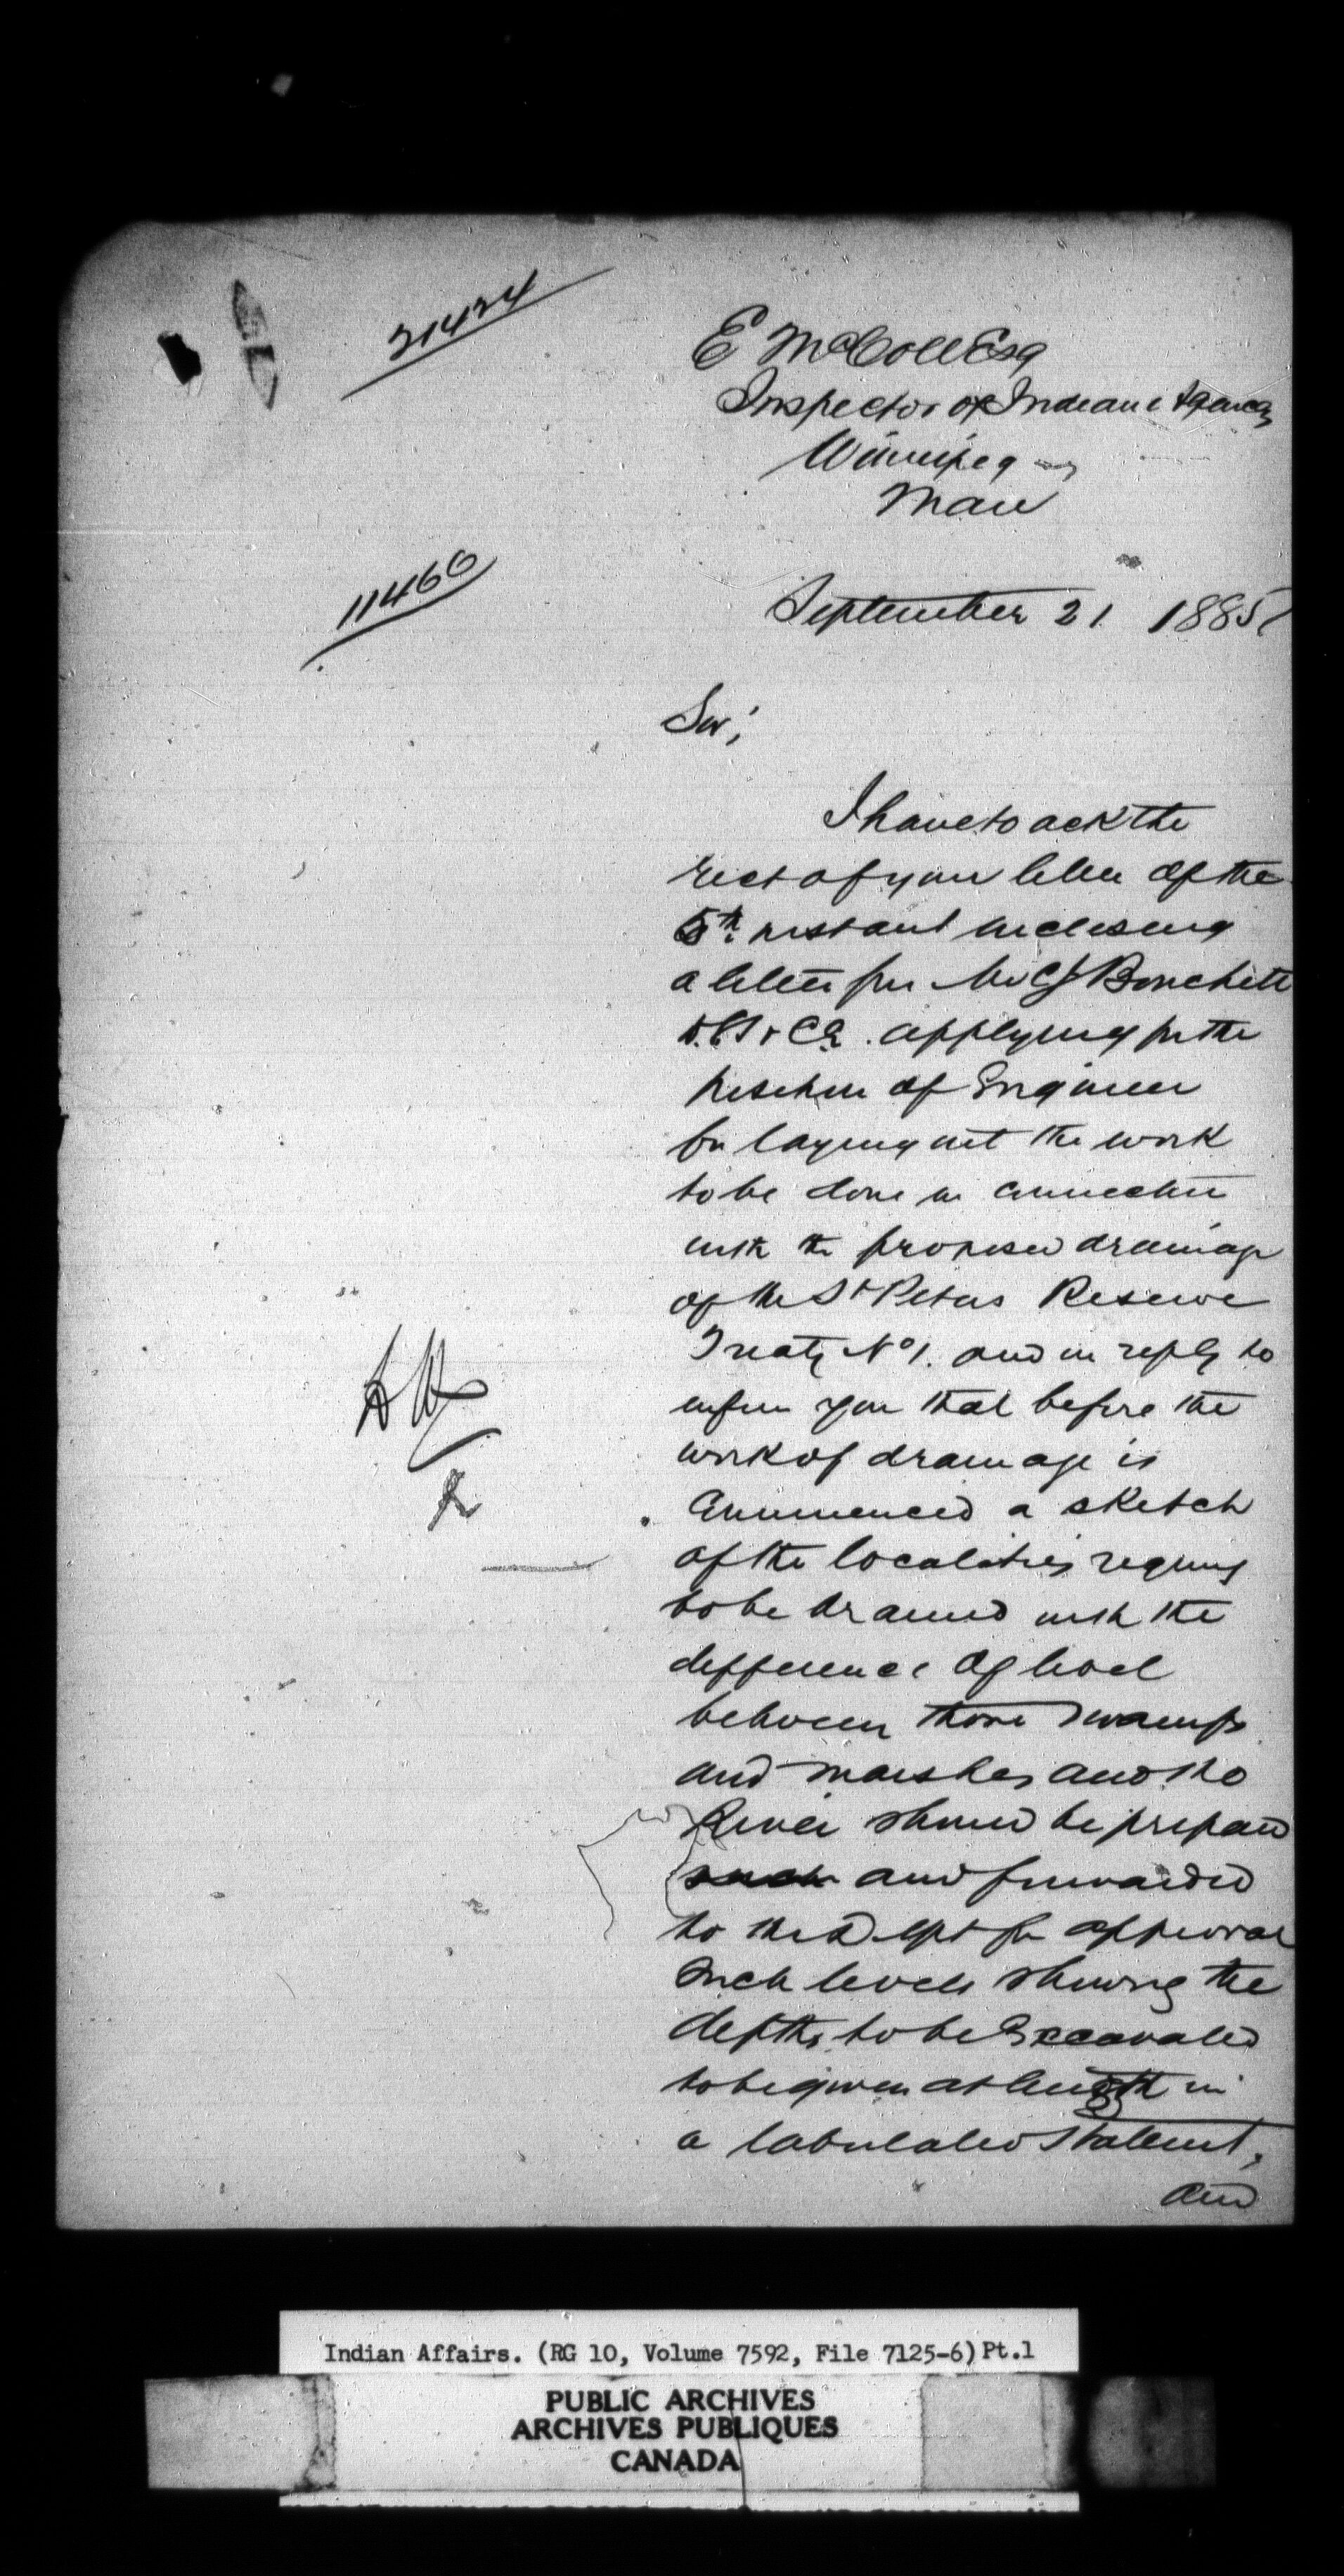 21424
E McColl Esq
Inspector of Indian Agencies
Winnipeg
Man
11466
September 21 1885
Sir,
I have to ack the
rect of your letter of the
5th instant inclosing
a letter fm Mr C J Bouchette
applying for the
position of Engineer
for laying out the work
to be done in connection
with the proposed drainage
of the St Peters Reserve
Treaty No 1. and in reply to
inform you that before the
work of drainage is
commenced a sketch
of the localities requiring
to be drained with the
difference of level
between those swamps
and marshes and the
River should be prepared
and forwarded
to the Dept for approval
such levels showing the
depths to be excavated
to be given at length in
a tabulated statement,
and
Indian Affairs. (RG 10, Volume 7592, File 7125-6) Pt.1
PUBLIC ARCHIVES
ARCHIVES PUBLIQUES
CANADA